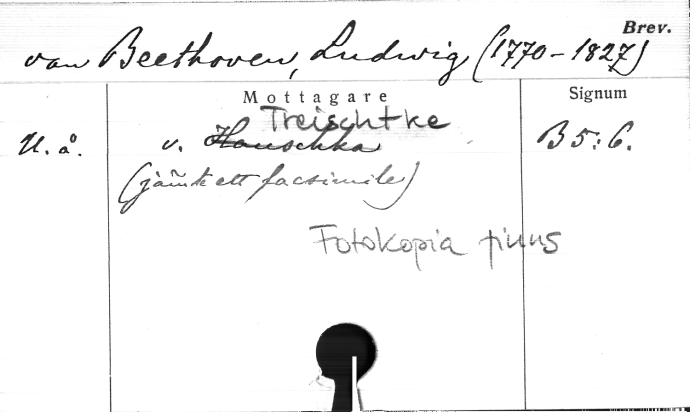 Brev.
van Beethoven, Ludwig (1770-1827)
Mottagare
Signum
Treischtke
U. å. v. Hauschka B 5:6.
(jämte ett facsimile)
Fotokopia finns